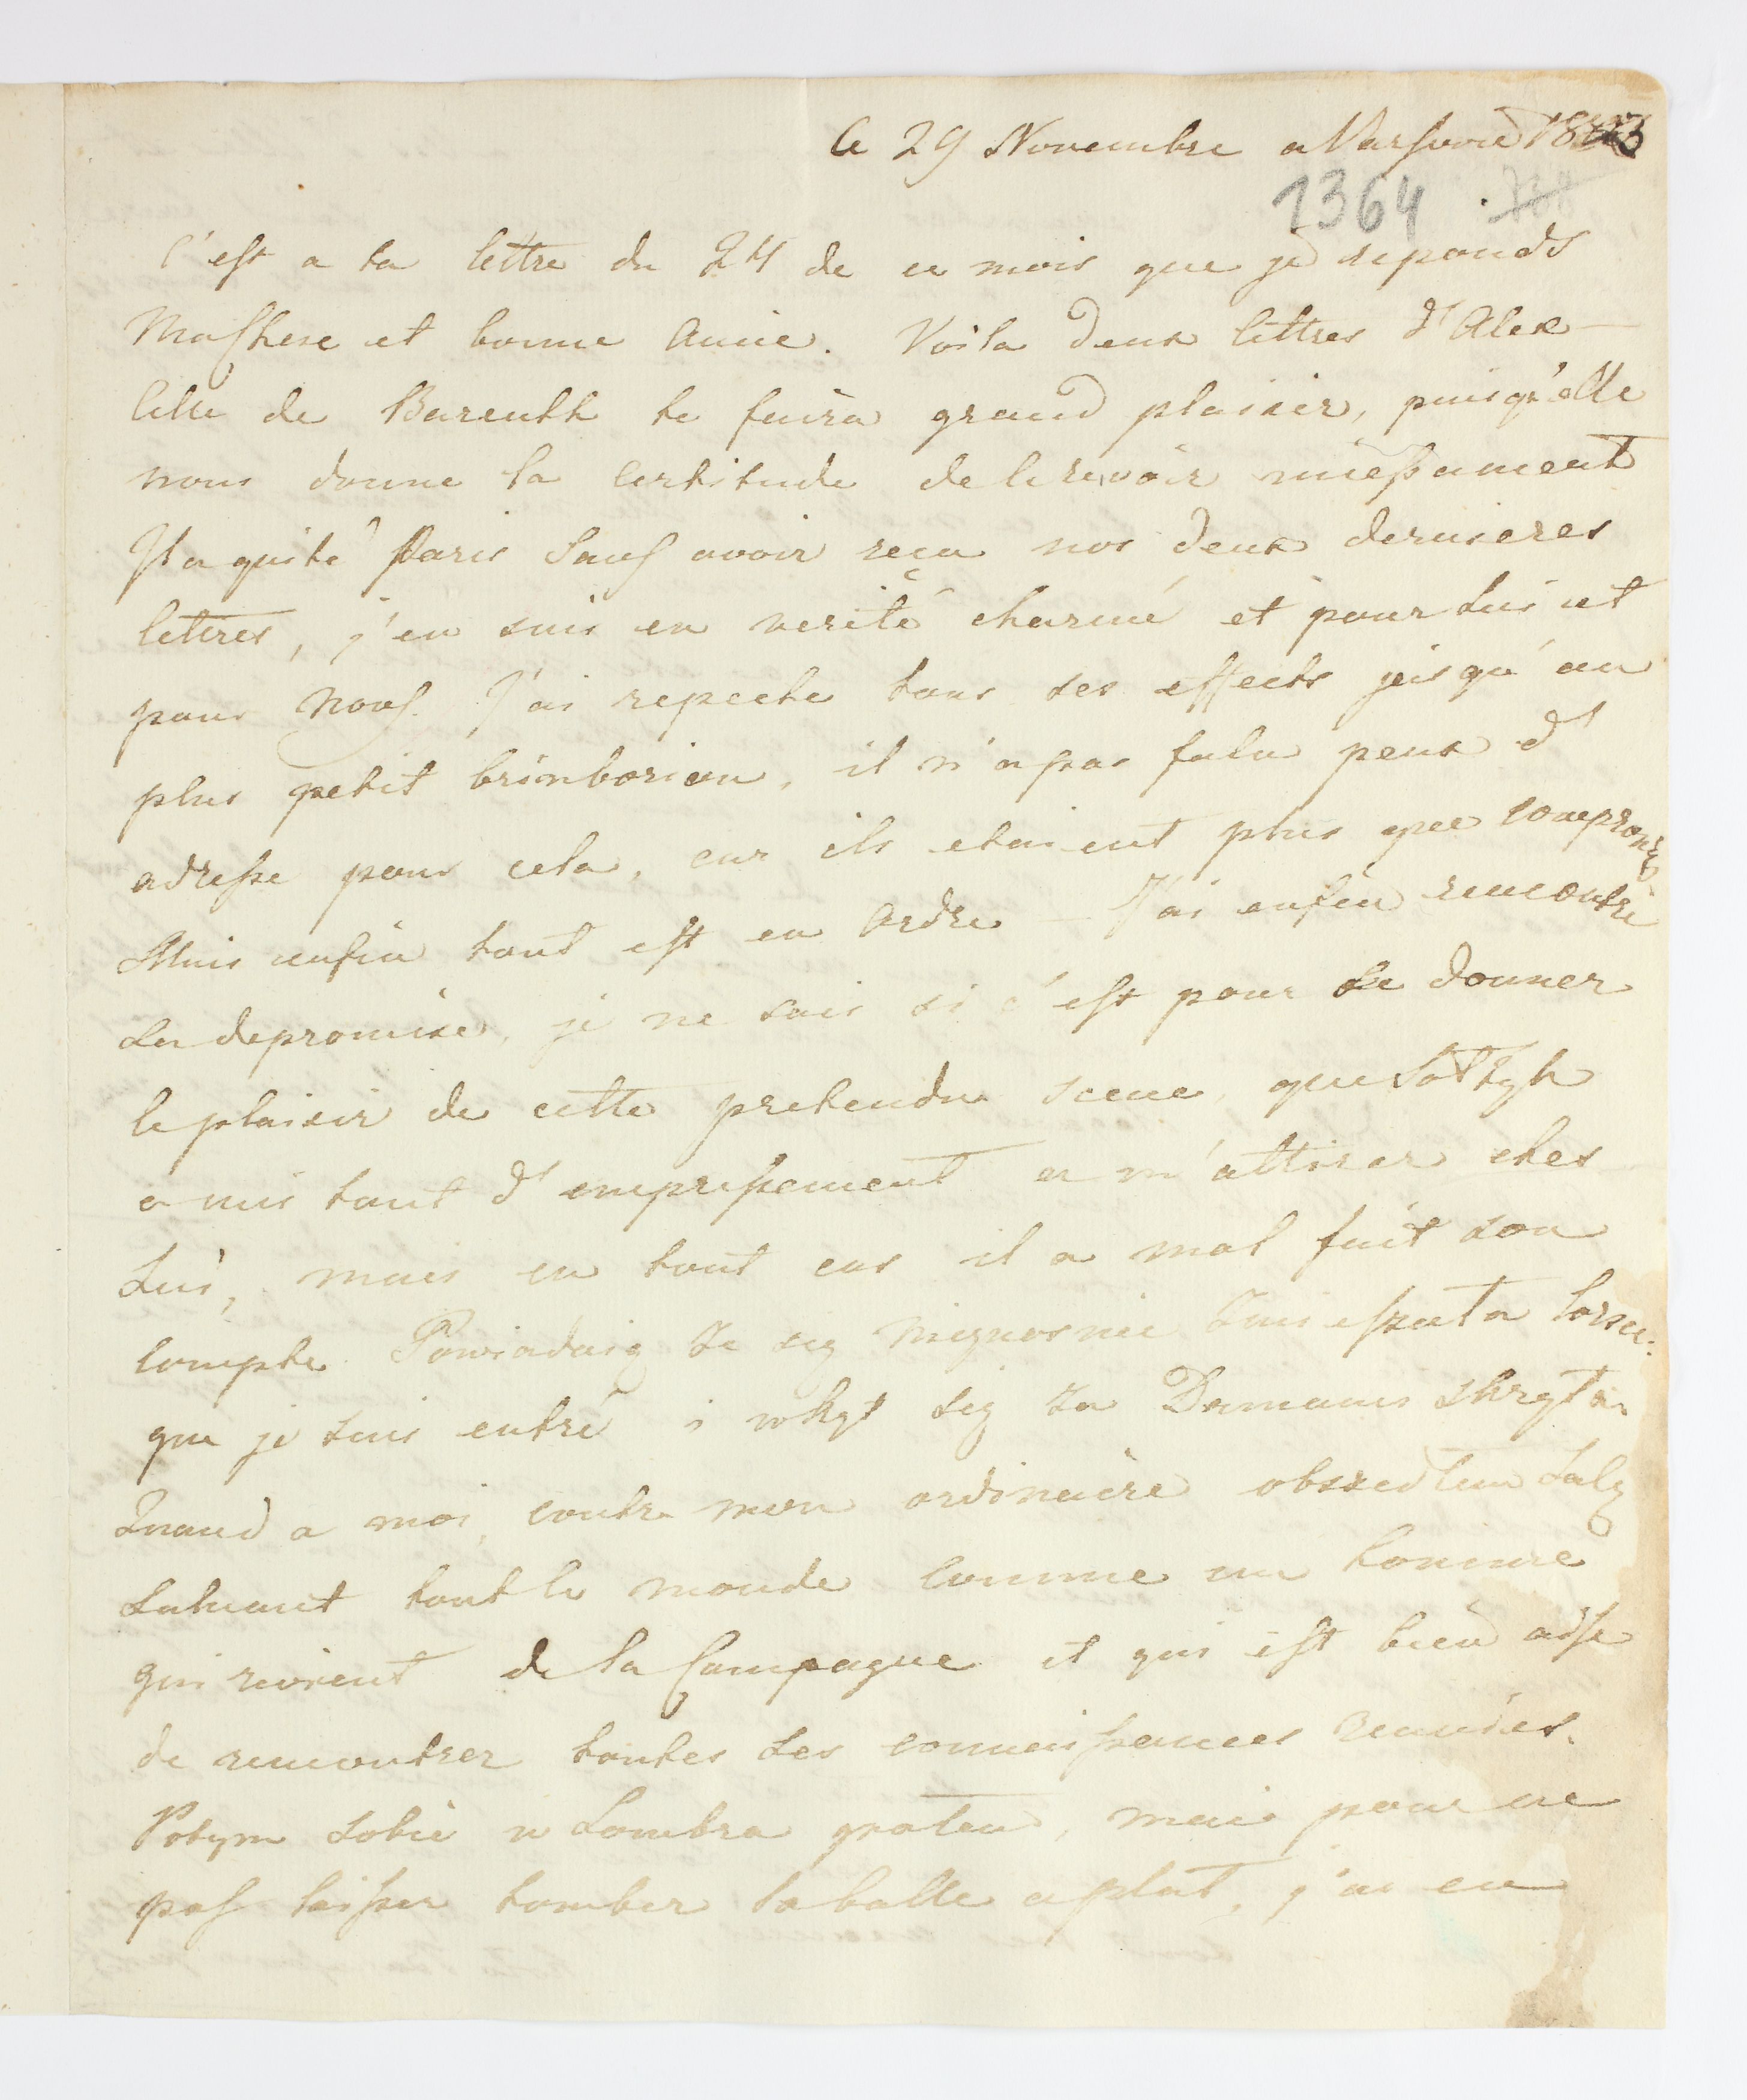 Ce 29 Novembre a Varsovie 1823
1364 738
C'est a ta lettre du 24 de ce mois que je reponds
Ma Chere et bonne Amie. Voila deux lettres d'Alex—
Celle de Bareuth te faira grand plaisir, puisqu'elle
nous donne la certitude de le revoir incessament
Il a quité Paris sans avoir reçu nos deux dernieres
lettres, j'en suis en verité charmé et pour lui et
pour nous. J'ai repeché tous ses effects jusqu'au
plus petit brimborion, il n'a pas falu peux d'
adresse pour cela, car ils etaient plus que compromis
Mais enfin tout est en ordre — J'ai enfin rencontré
La depromise, je ne sais si c'est pour se donner
le plaisir de cette pretendue scene, que Sottyk
a mis tant d'empressement a m'attirer ches
Lui, mais en tout cas il a mal fait son
compte. Powiadaią ze się niezmiernie zmieszała lors
que je suis entré i wkąt się za Damami skryła
Quand a moi, contre mon ordinaire obszedłem Salę
Saluant tout le monde comme un homme
qui revient de la Campagne et qui est bien aise
de rencontrer toutes ses connaissances reunies.
Potym sobie w Lombra grałem, mais pour ne
pas laisser tomber la balle a plat, j'ai eu